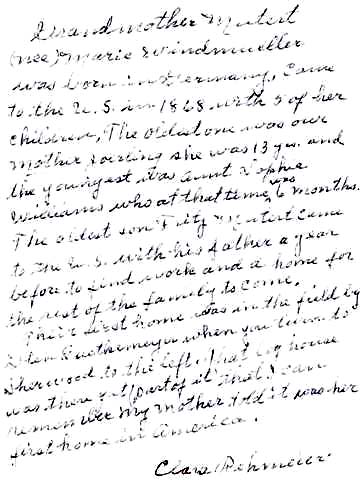 Grandmother Mutert
(nee) Marie Windmueller
was born in Germany, Came
to the U. S. in 1868 with 5 of her
children, The oldest one was our
mother she was 13 yrs. and
the youngest was Aunt Sophie
Williams who at that time was 6 months.
The oldest son Fritz Mutert came
to the U. S. with his father a year
before to find work and a home for
the rest of the family to come.
Their first home was in the field by
when you turn to
Sherwood to the left. That log house
was there yet (part of it) that I can
remember My mother told it was her
first home in America.
Clara Rehmeier